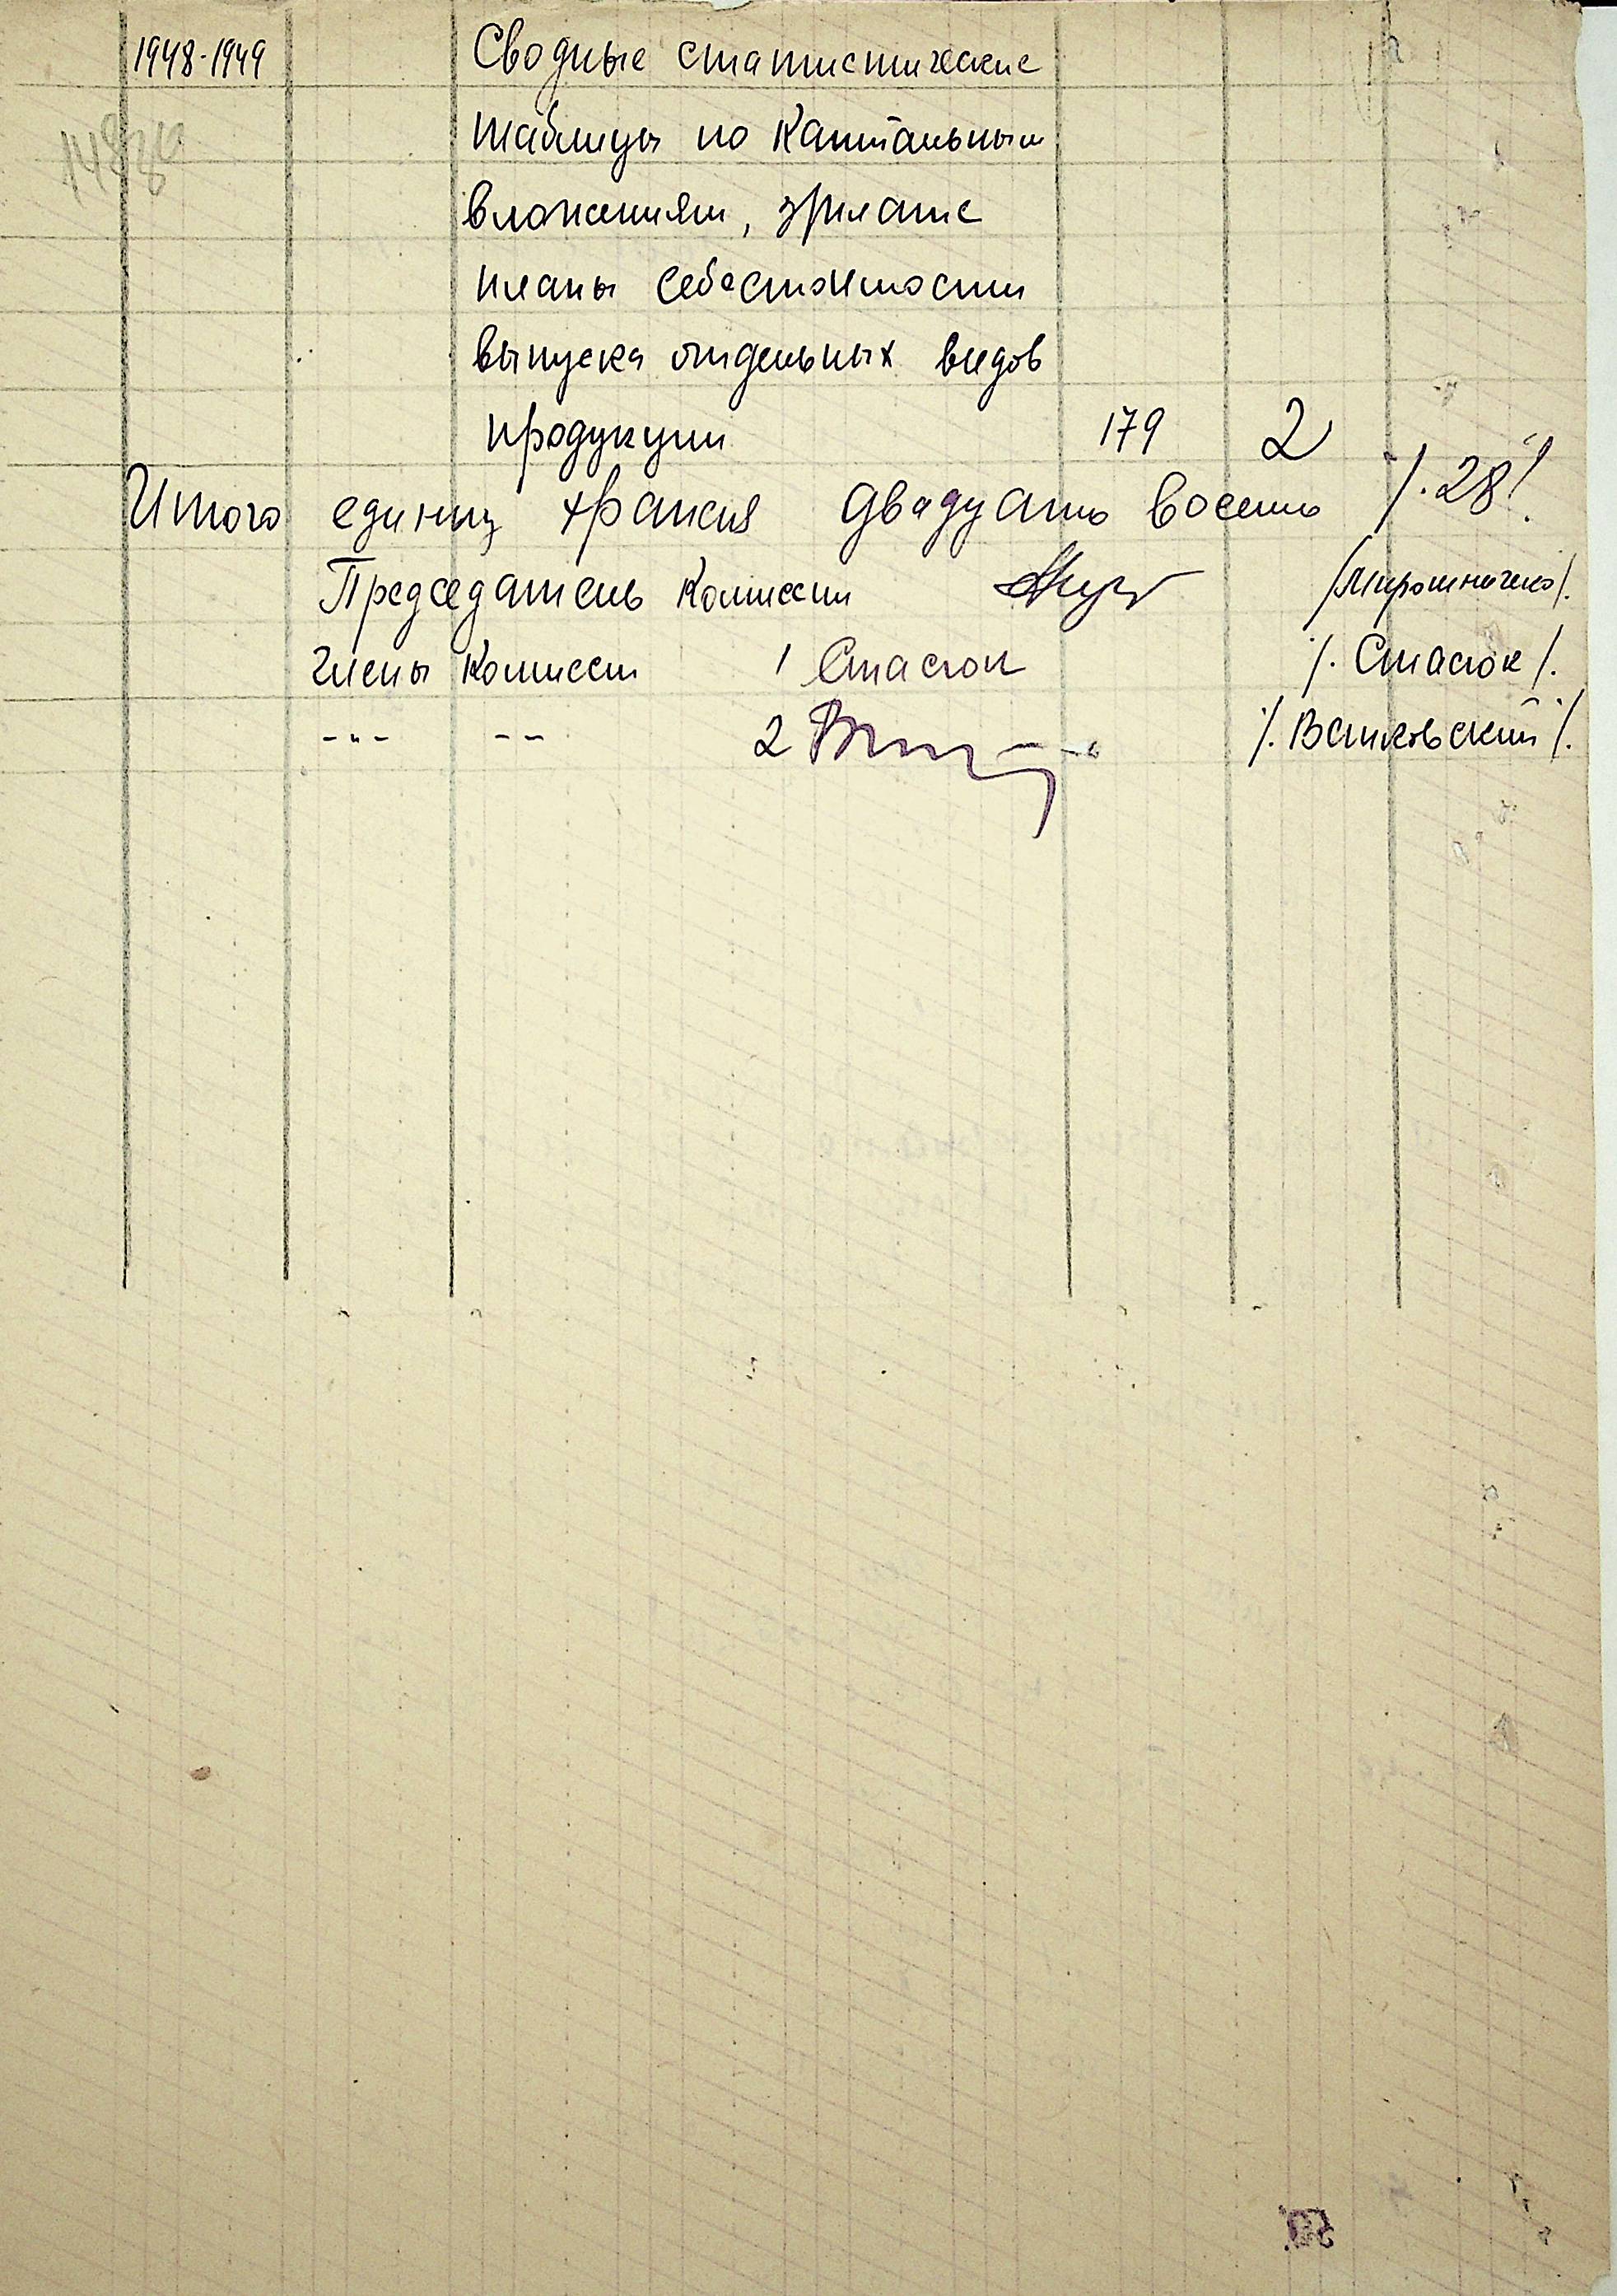 1948-1949 Сводные статистические
таблицы по капитальным
вложениям,
планы себестоимости
выпуска отдельных видов
продукции 179 2
Итого единиц хранения двадцать восемь /.28/.
Председатель комиссии /Мирошниченко/.
Члены комиссии 1 Стасюк /.Стасюк/.
-"- -- 2 /.Вельковский/.